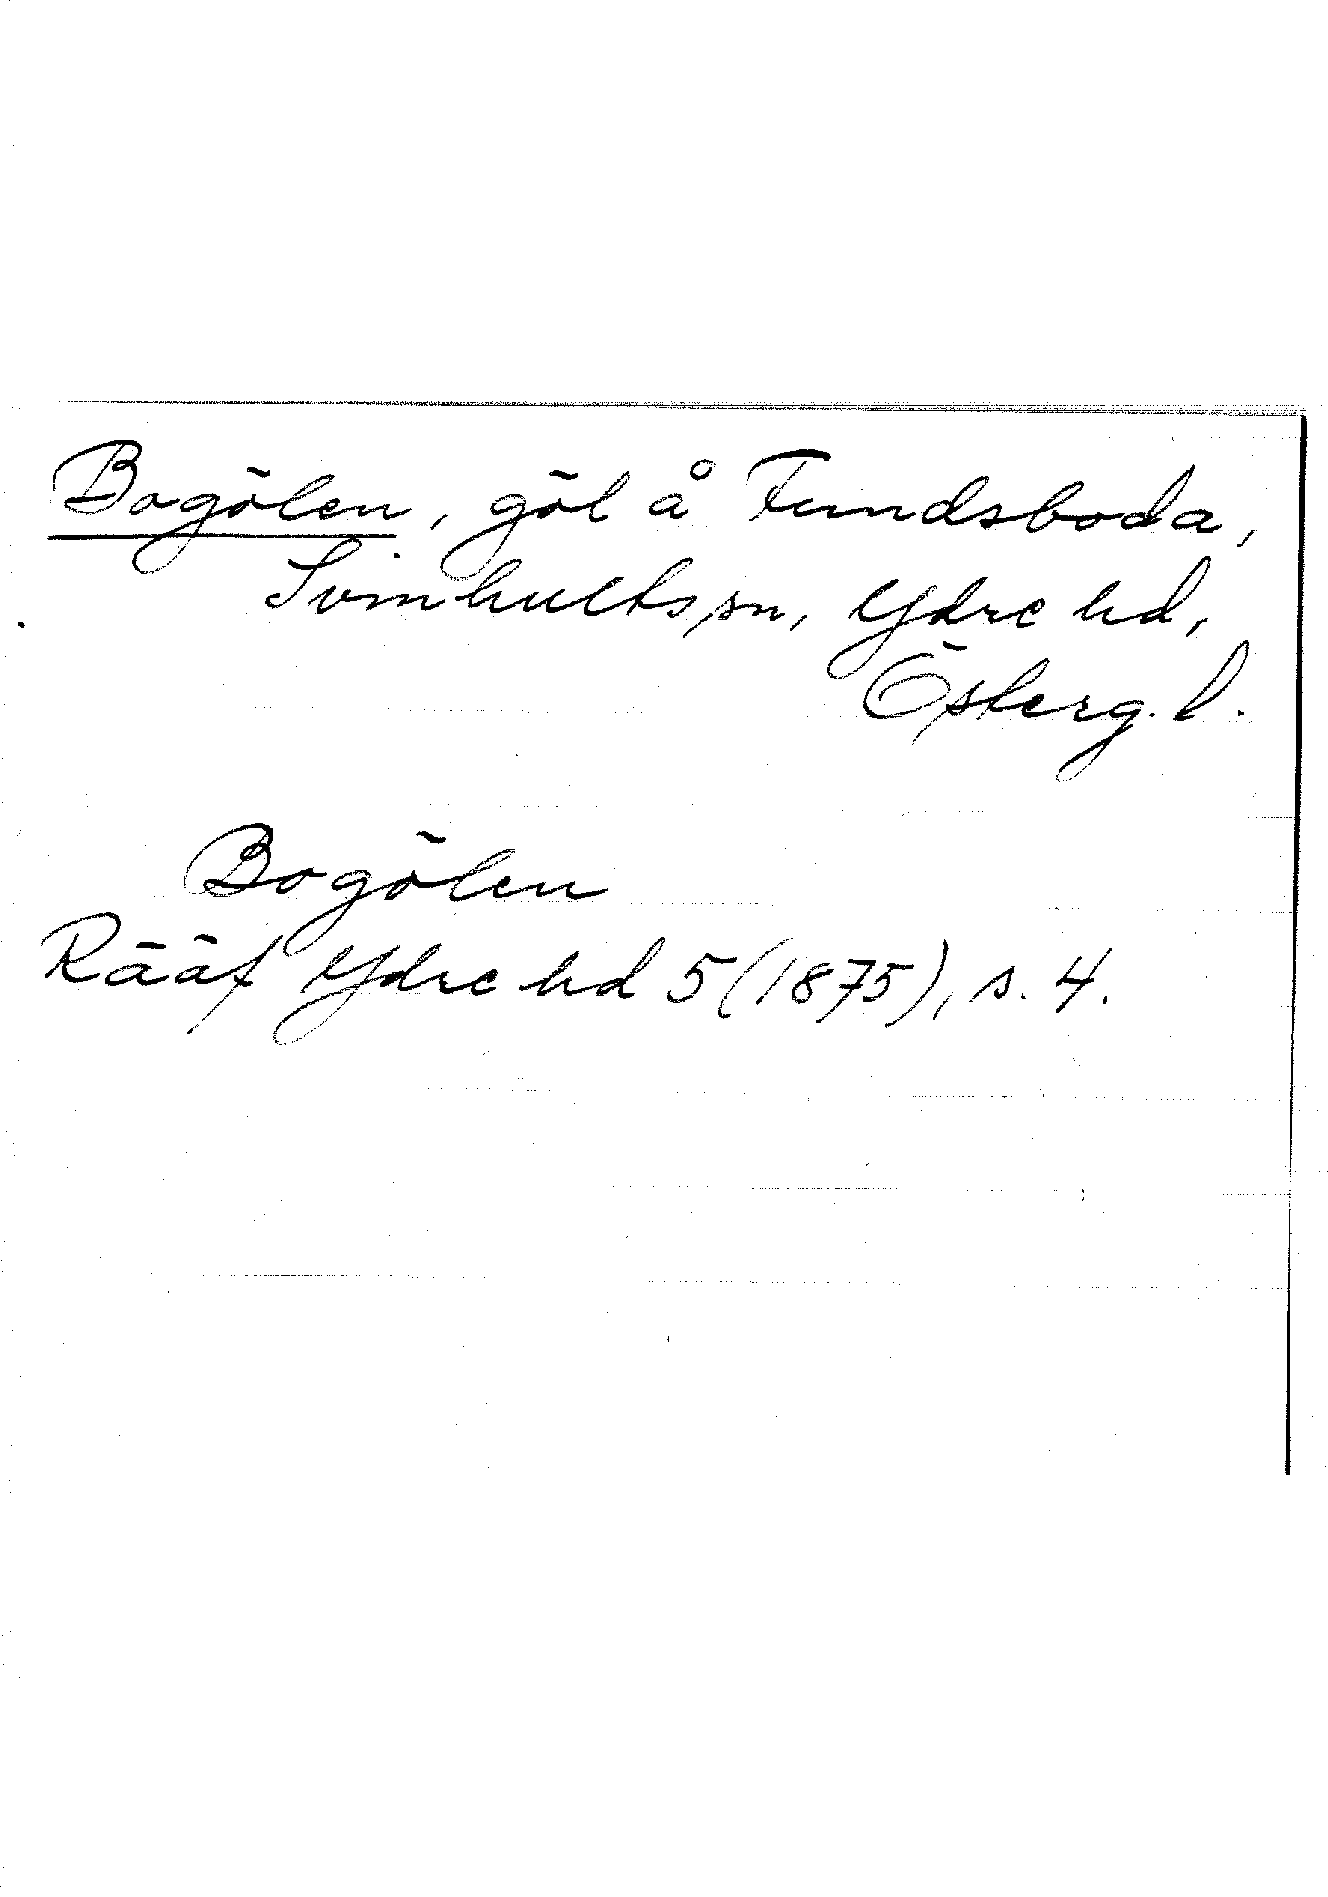 Bogölen, göl å Fundsboda,
Svinhults sn, Ydre hd,
Österg. l.
Bogölen
Rääf Ydre hd 5 (1875), s. 4.